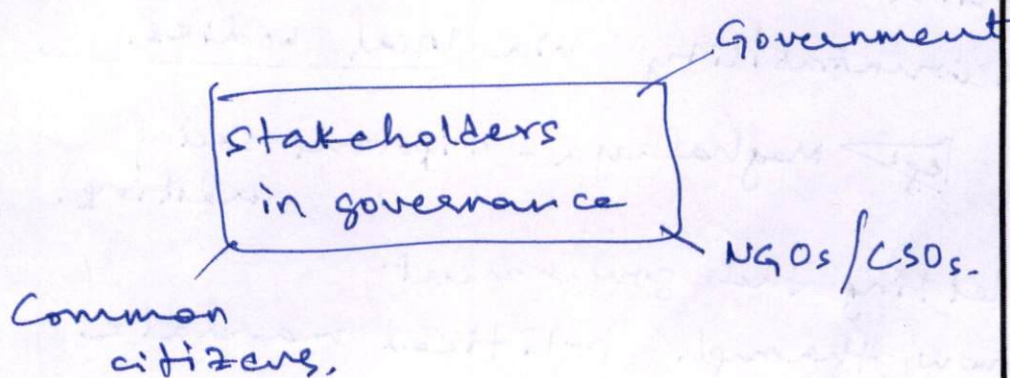 Government
stakeholders
in governance
NGOs/CSOs.
Common
citizens.